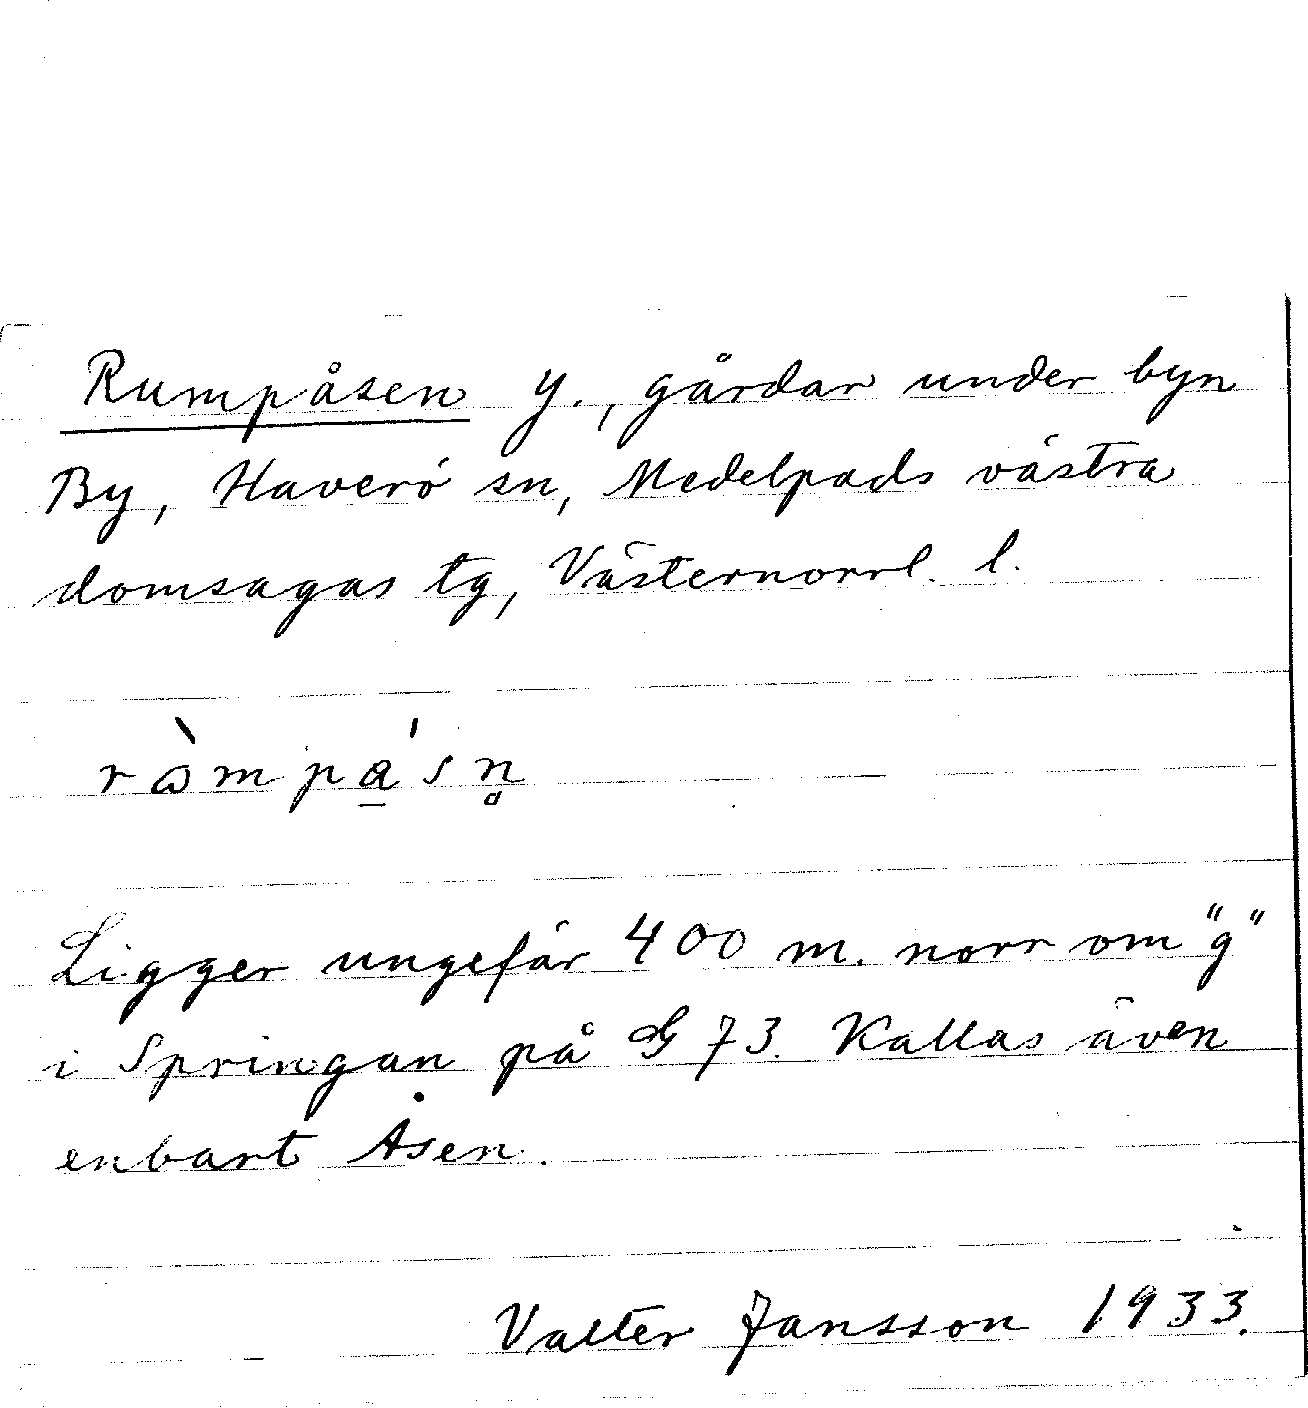 Rumpåsen y., gårdar under byn
By, Haverö sn, Medelpads västra
domsagas tg, Västernorrl. l.
ròmpa̱'sn̥
Ligger ungefär 400 m. norr om "g"
i Springan på G 73. Kallas även
enbart Åsen.
Valter Jansson 1933.